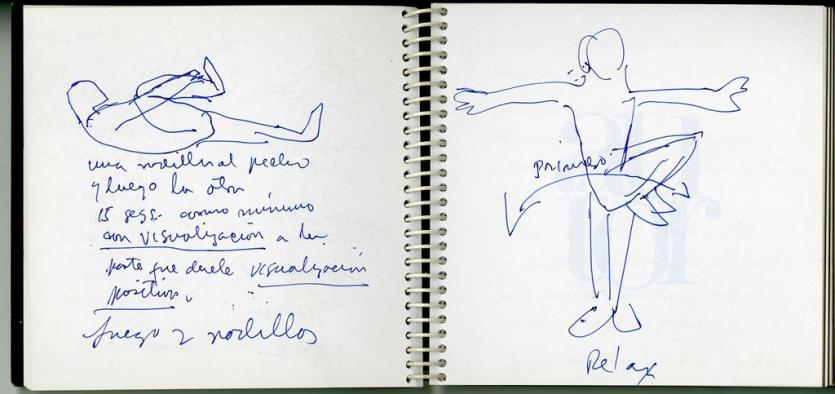 una rodilla al pecho
y luego la otra
15 segs. como mínimo
con visualización a la
parte que duele visualización
positiva.
luego 2 rodillas
primero
Relax